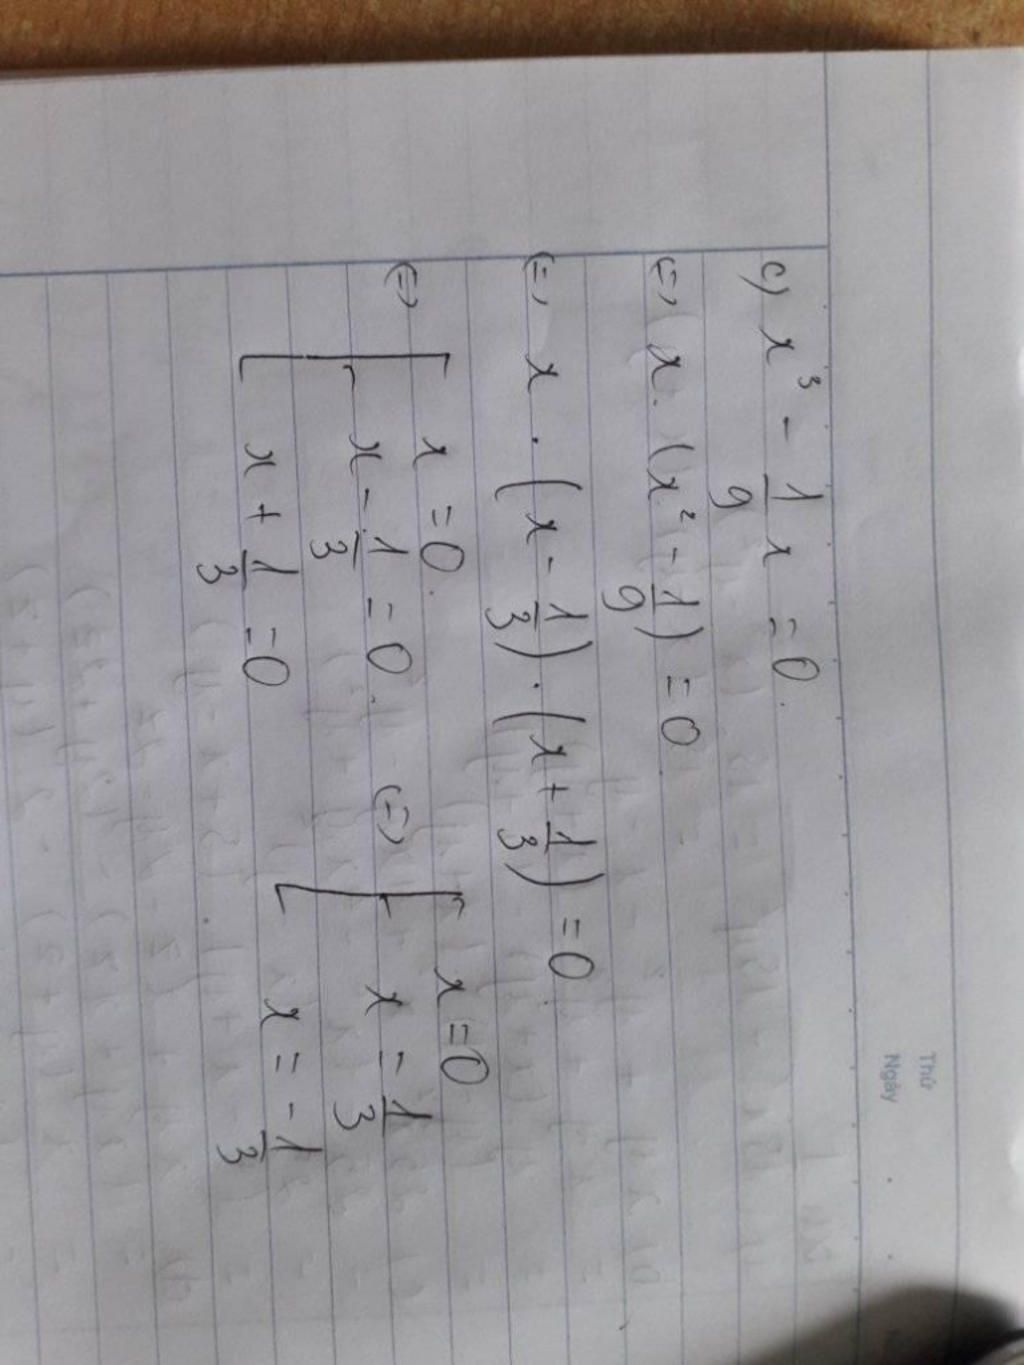 Thứ
Ngày
c) x³ - 1/9 x = 0.
(=) x. (x² - 1/9) = 0
(=) x . (x - 1/3) . (x + 1/3) = 0
(=) [ x = 0. (=) [ x = 0
x - 1/3 = 0. x = 1/3
x + 1/3 = 0 x = -1/3